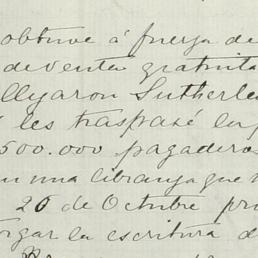 obtuve á fuerza de
de venta gratuita
Sutherle
les traspasé la
500.000 pagaderos
n una libranza que
26 de Octubre pro
orgar la escritura d